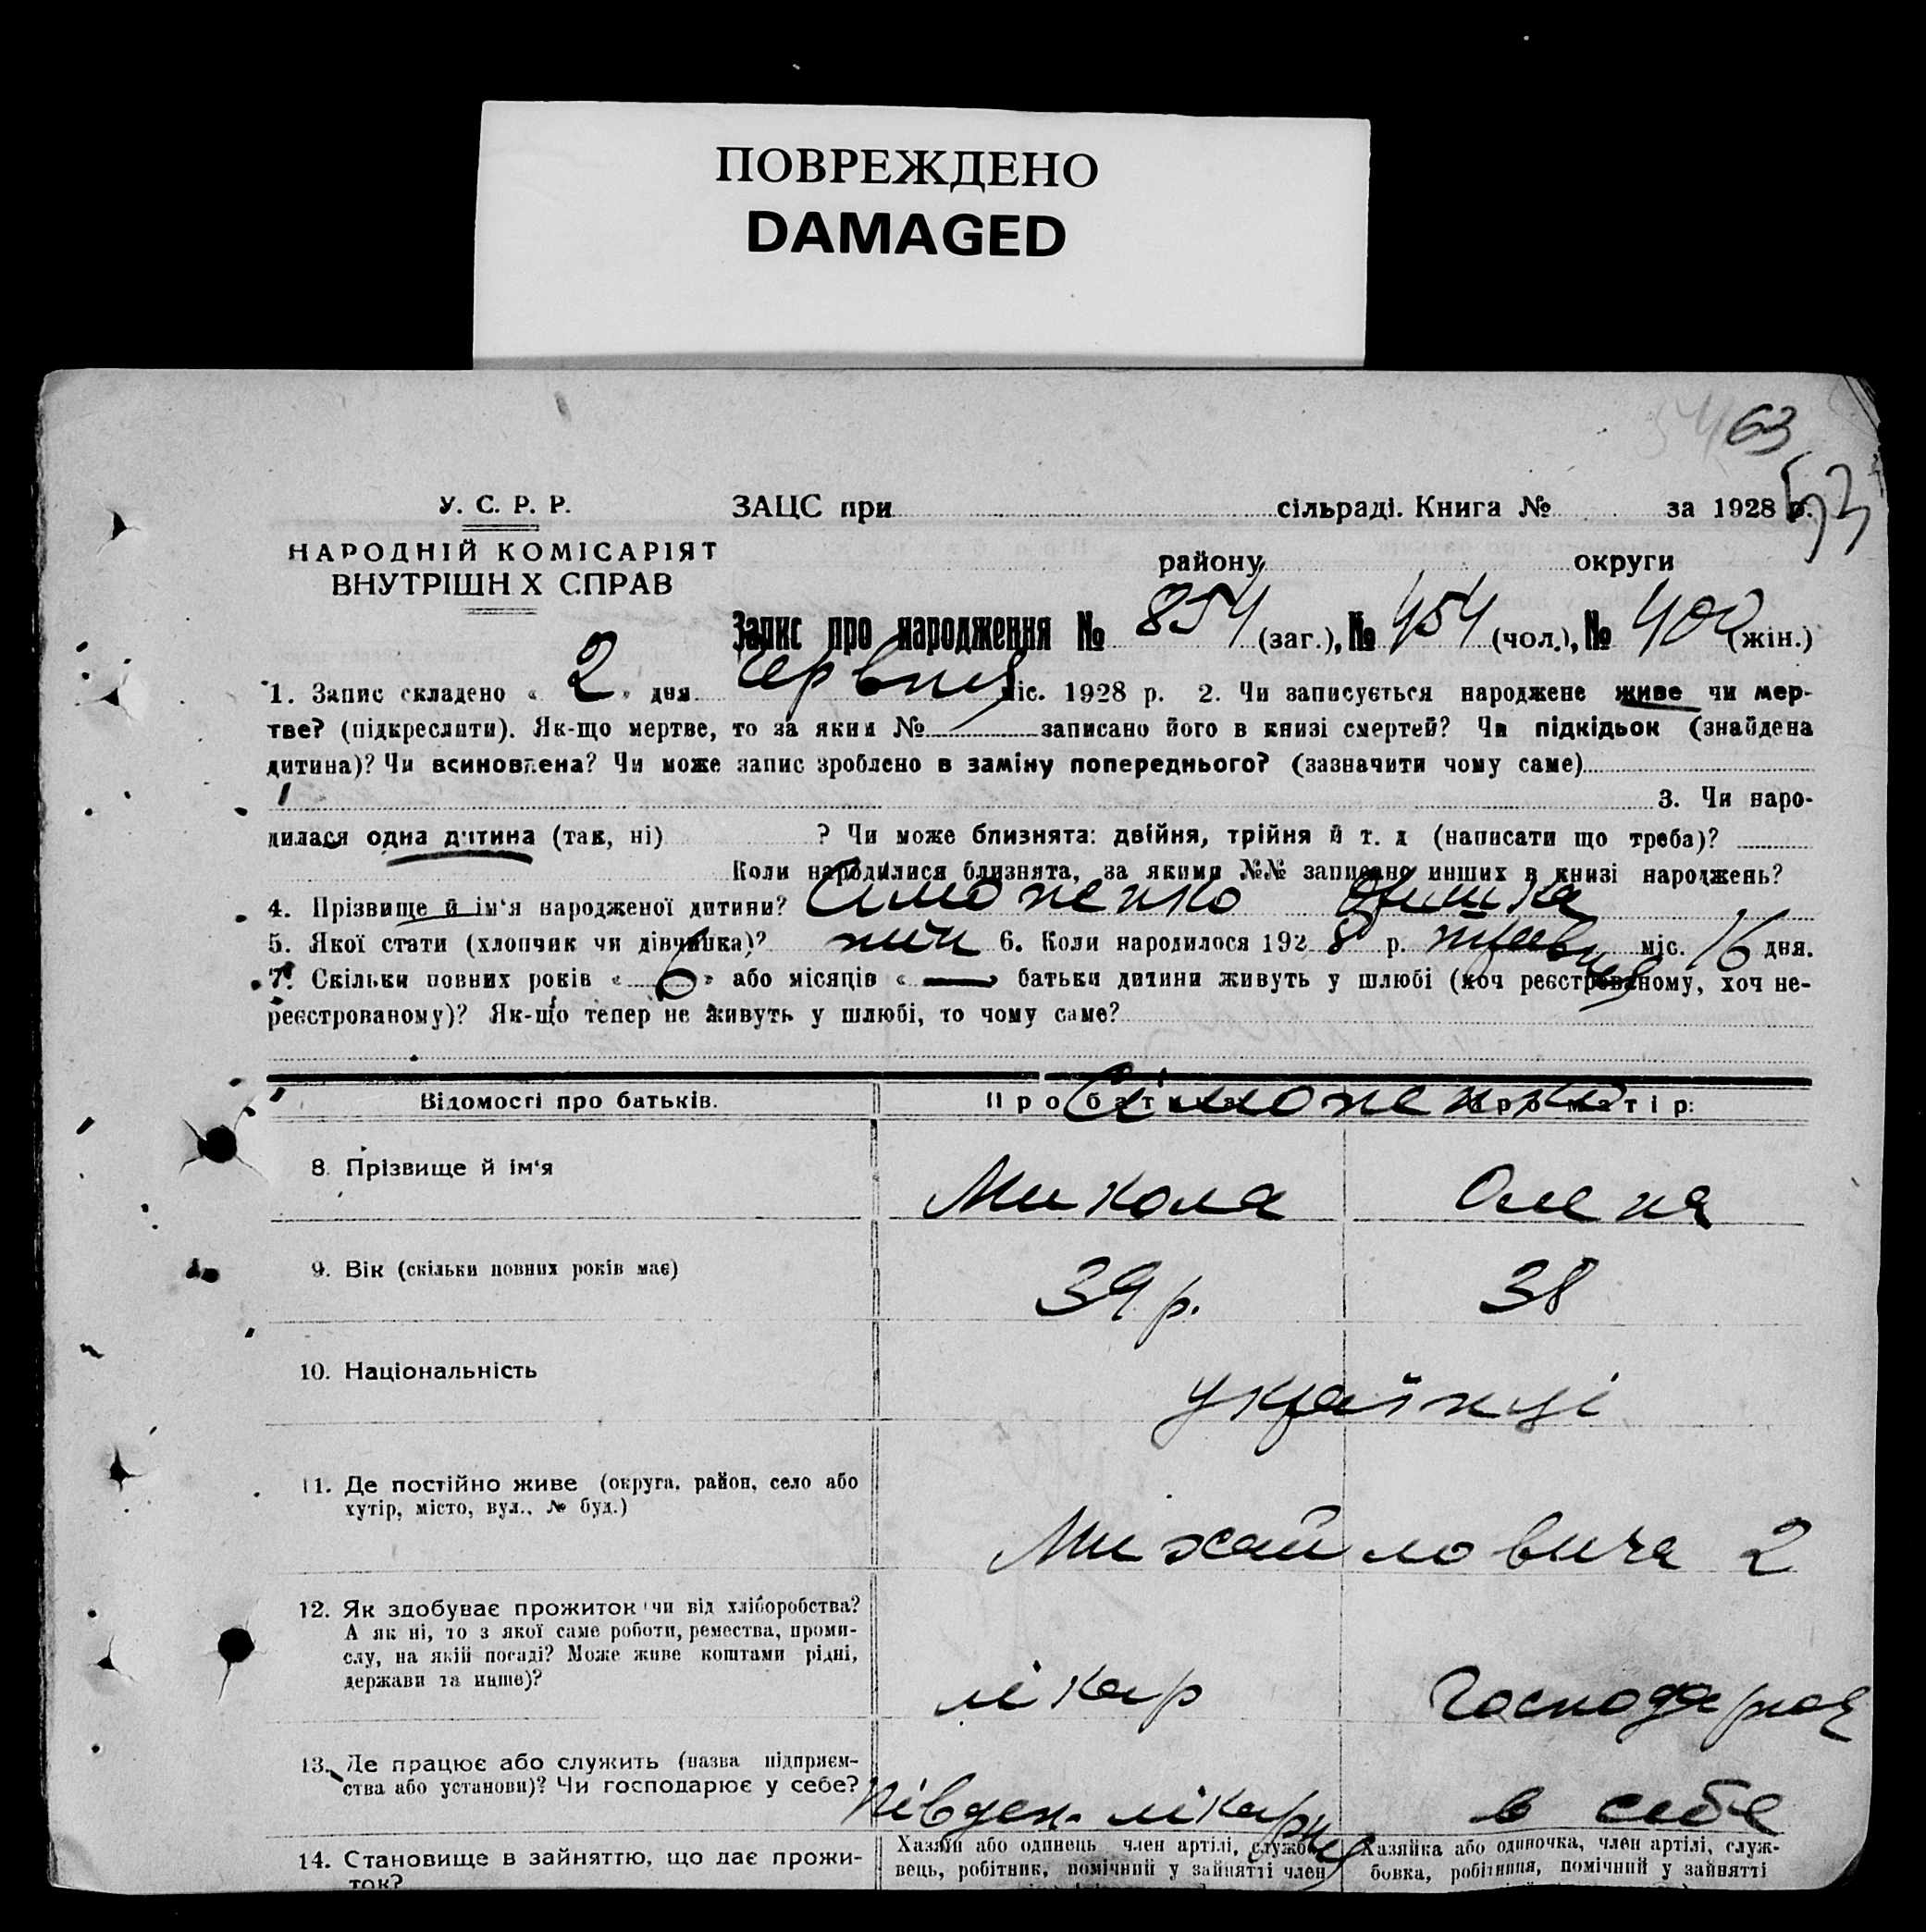 ПОВРЕЖДЕНО
DAMAGED
63
53
У. С. Р. Р.
НАРОДНІЙ КОМІСАРІЯТ
ВНУТРІШН Х СПРАВ
ЗАЦС при сільраді. Книга № за 1928 р.
району округи
Запис про народження № 854 (заг.), № 454 (чол.), № 400 (жін.)
1. Запис складено « 2 » дня червня міс. 1928 р. 2. Чи записується народжене живе чи мер-
тве? (підкреслити). Як-що мертве, то за яким № записано його в книзі смертей? Чи підкідьок (знайдена
дитина)? Чи всиновлена? Чи може запис зроблено в заміну попереднього? (зазначити чому саме)
3. Чи наро-
дилася одна дитина (так, ні) ? Чи може близнята: двійня, трійня й т. д (написати що треба)?
Коли народилися близнята, за якими №№ записано инших в книзі народжень?
4. Прізвище й ім'я народженої дитини? Симоненко
5. Якої стати (хлопчик чи дівчинка)? 6. Коли народилося 1928 р. травня міс. 16 дня.
7. Скільки повних років « 6 » або місяців « — » батьки дитини живуть у шлюбі (хоч реєстрованому, хоч не-
реєстрованому)? Як-що тепер не живуть у шлюбі, то чому саме?
Відомості про батьків. Про батька: Про матір:
Сімоненко
8. Прізвище й ім'я Микола Олена
9. Вік (скільки повних років має) 39 р. 38
10. Національність українці
11. Де постійно живе (округа, район, село або
хутір, місто, вул., № буд.)
Михайловича 2
12. Як здобуває прожиток чи від хліборобства?
А як ні, то з якої саме роботи, ремества, проми-
слу, на якій посаді? Може живе коштами рідні,
держави та инше)?
лікар Господарює
13. Де працює або служить (назва підприєм-
ства або установи)? Чи господарює у себе?
Півден. лікарня в себе
14. Становище в зайняттю, що дає прожи-
ток?
Хазяїн або одинець член артілі, службо-
вець, робітник, помічний у зайнятті член
Хазяйка або одиночка, член артілі, служ-
бовка, робітниця, помічний у зайнятті